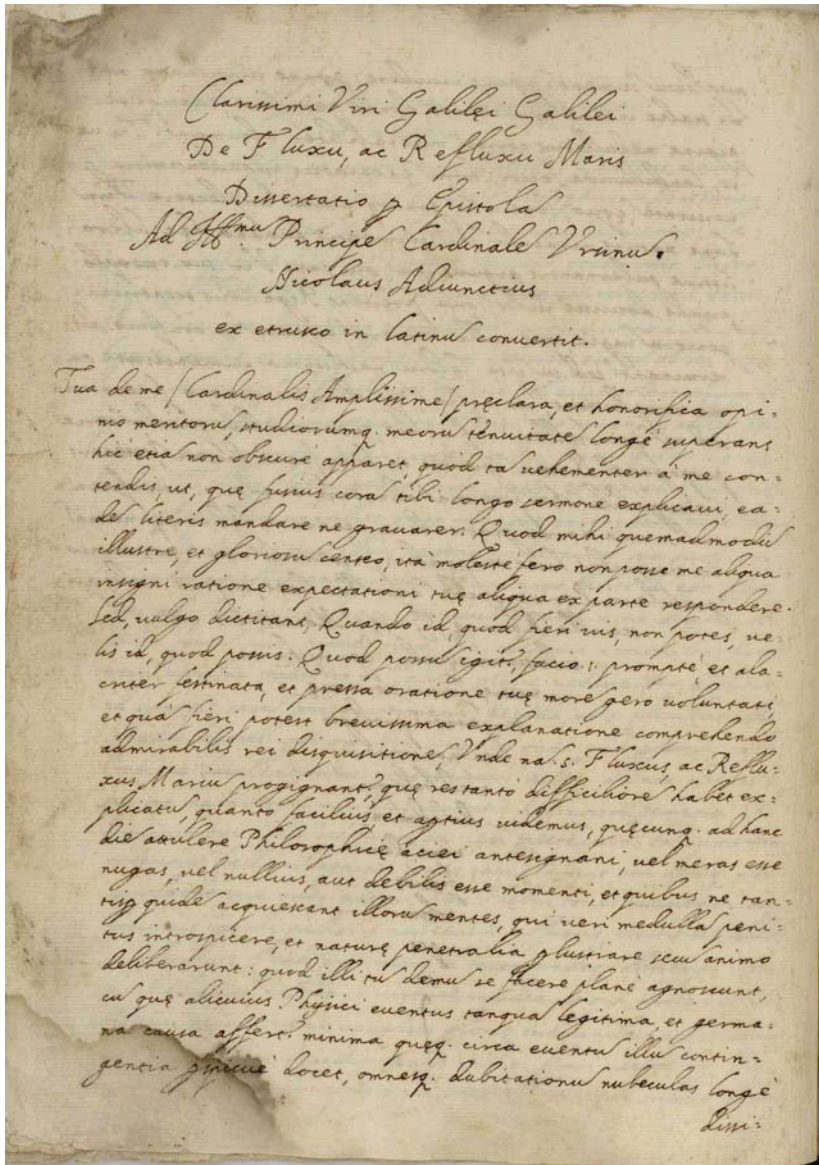 Clarissimi Viri Galilęi Galilei
De Fluxu, ac Refluxu Maris
Dissertatio ꝑ Epistola
Ad Ill.mũ Principẽ Cardinalẽ Vrsinũ.
Nicolaus Adiunctius
ex etrusco in latinũ conuertit.
Tua de me / Cardinalis Amplissime / pręclara, et honorifica opi:
nio meritorũ, studiorumq. meorũ tenuitatẽ longè superans
hic etiã non obscurè apparet, quòd tã vehementer à me con=
tendis, ut, quę fusius corã tibi longo sermone explicaui, ea=
dẽ literis mandare ne grauarer. Quod mihi quemadmodũ
illustre, et gloriosũ censeo, ità molestè fero non posse me aliqua
insigni ratione expectationi tuę aliqua ex parte respondere.
Sed, vulgo dictitant, Quando id, quod fieri vis, non potes, ve=
lis id, quod possis. Quod possũ igit.r, facio: promptè, et ala=
criter festinata, et pressa oratione tuę morẽ gero voluntati,
et quà fieri potest breuissima explanatione comprehendo
admirabilis rei disquisitionẽ, Vnde na.s. Fluxus, ac Reflu=
xus Mariũ progignant.r, quę res tantò difficiliorẽ habet ex=
plicatũ, quanto faciliùs, et aptius videmus, quęcunq. ad hanc
diẽ attulere Philosophicę aciei antesignani, vel meras esse
nugas, vel nullius, aut debilis esse momenti, et quibus ne tan=
tisꝑ quidẽ acquiescant illorũ mentes, qui veri medullã peni=
tus introspicere, et naturę penetralia ꝑlustrare secũ animo
deliberarunt: quod illi tũ demũ se facere planè agnoscunt,
cũ quę alicuius Physici euentus tanquã legitima, et germa=
na causa affert.r minima quęq. circa euentũ illũ contin=
gentia ꝑspicuè docet, omnesq. dubitationũ nubeculas longè
dissi=